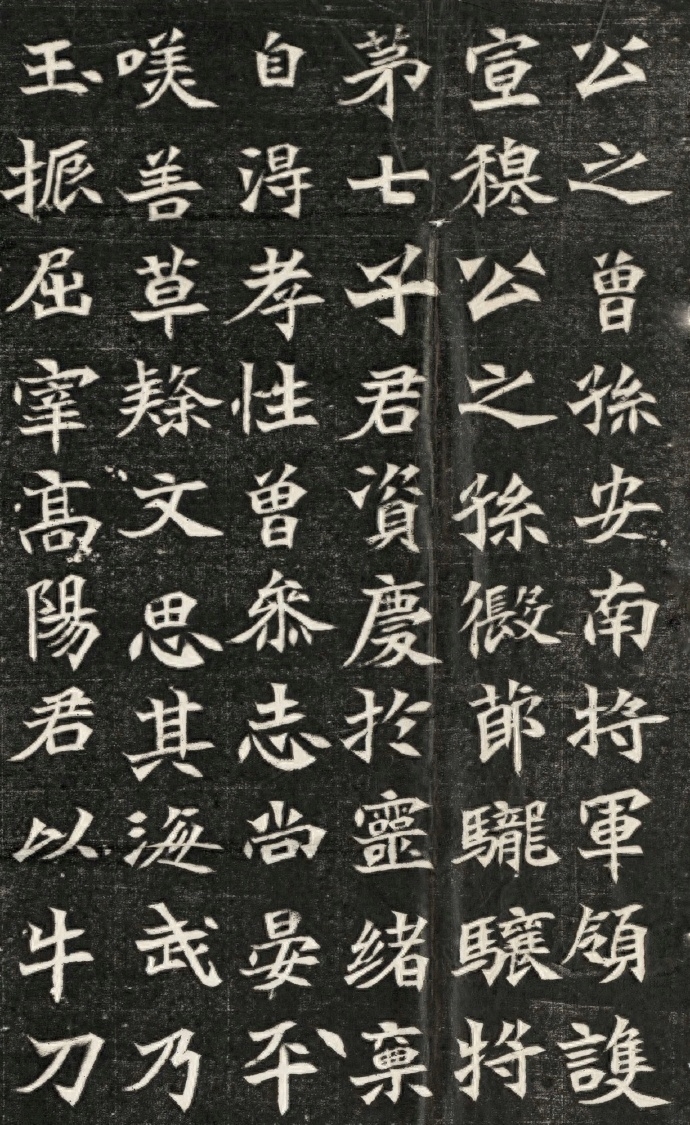 公之曾孫安南将軍領護
宣穆公之孫假節驪驤将
苐七子君資慶扵靈緒稟
自淂孝性曾叅志尚晏平
善草文思其海武乃
玉振屈宰髙陽君以牛刀